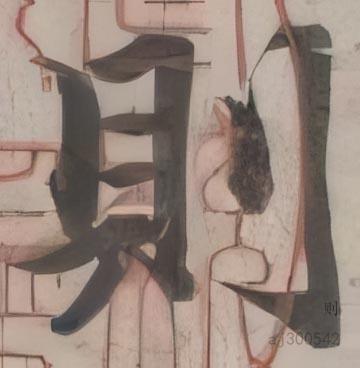 則
则
aj300542